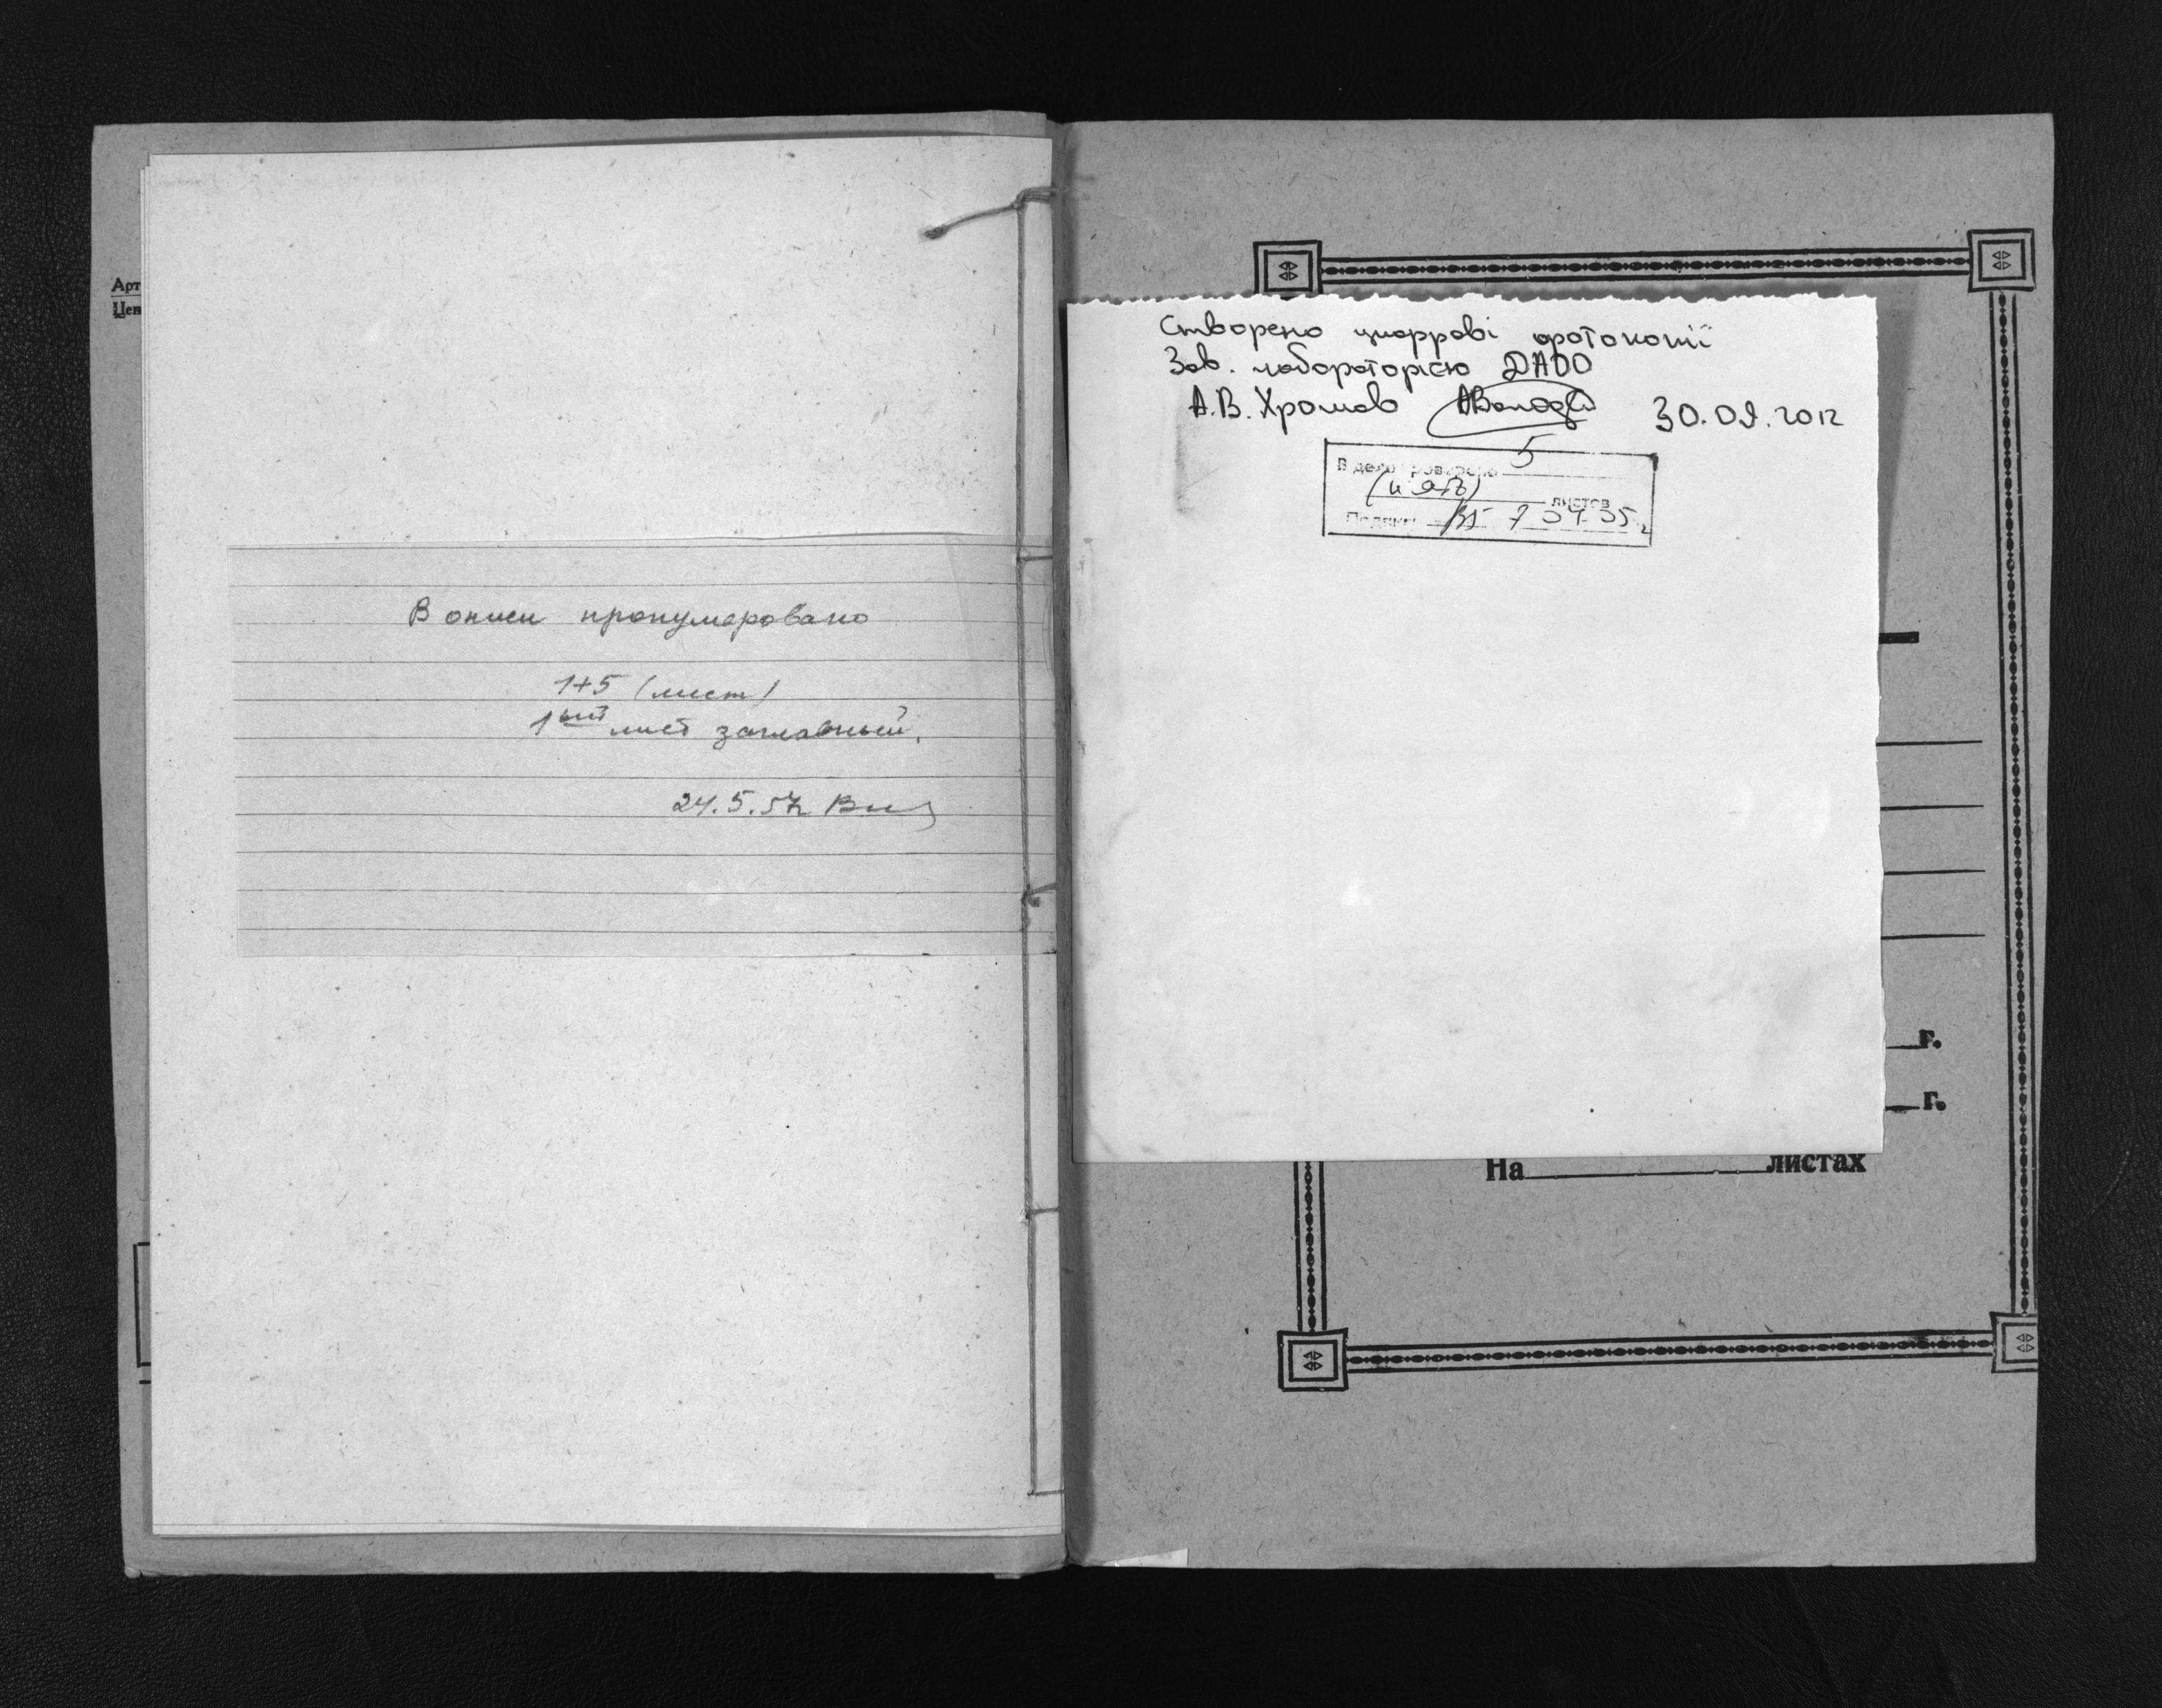 Арт
Цен
В описи пронумеровано
1+5 (лист)
1ый лист заглавный.
24.5.57г
Створено цифрові фотокопії
Зав. лабораторією ДАОО
А.В. Хромов 30.09.2012
В деле проверено 5
(пять) листов
Подпись
г.
г.
На листах